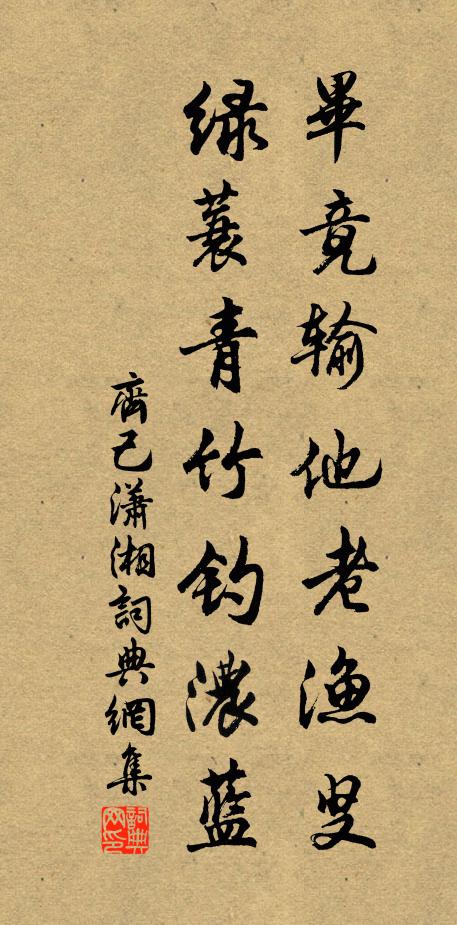 畢竟输他老漁叟
绿蓑青竹钓濃藍
齊己瀟湘詞典網集
詞典网印